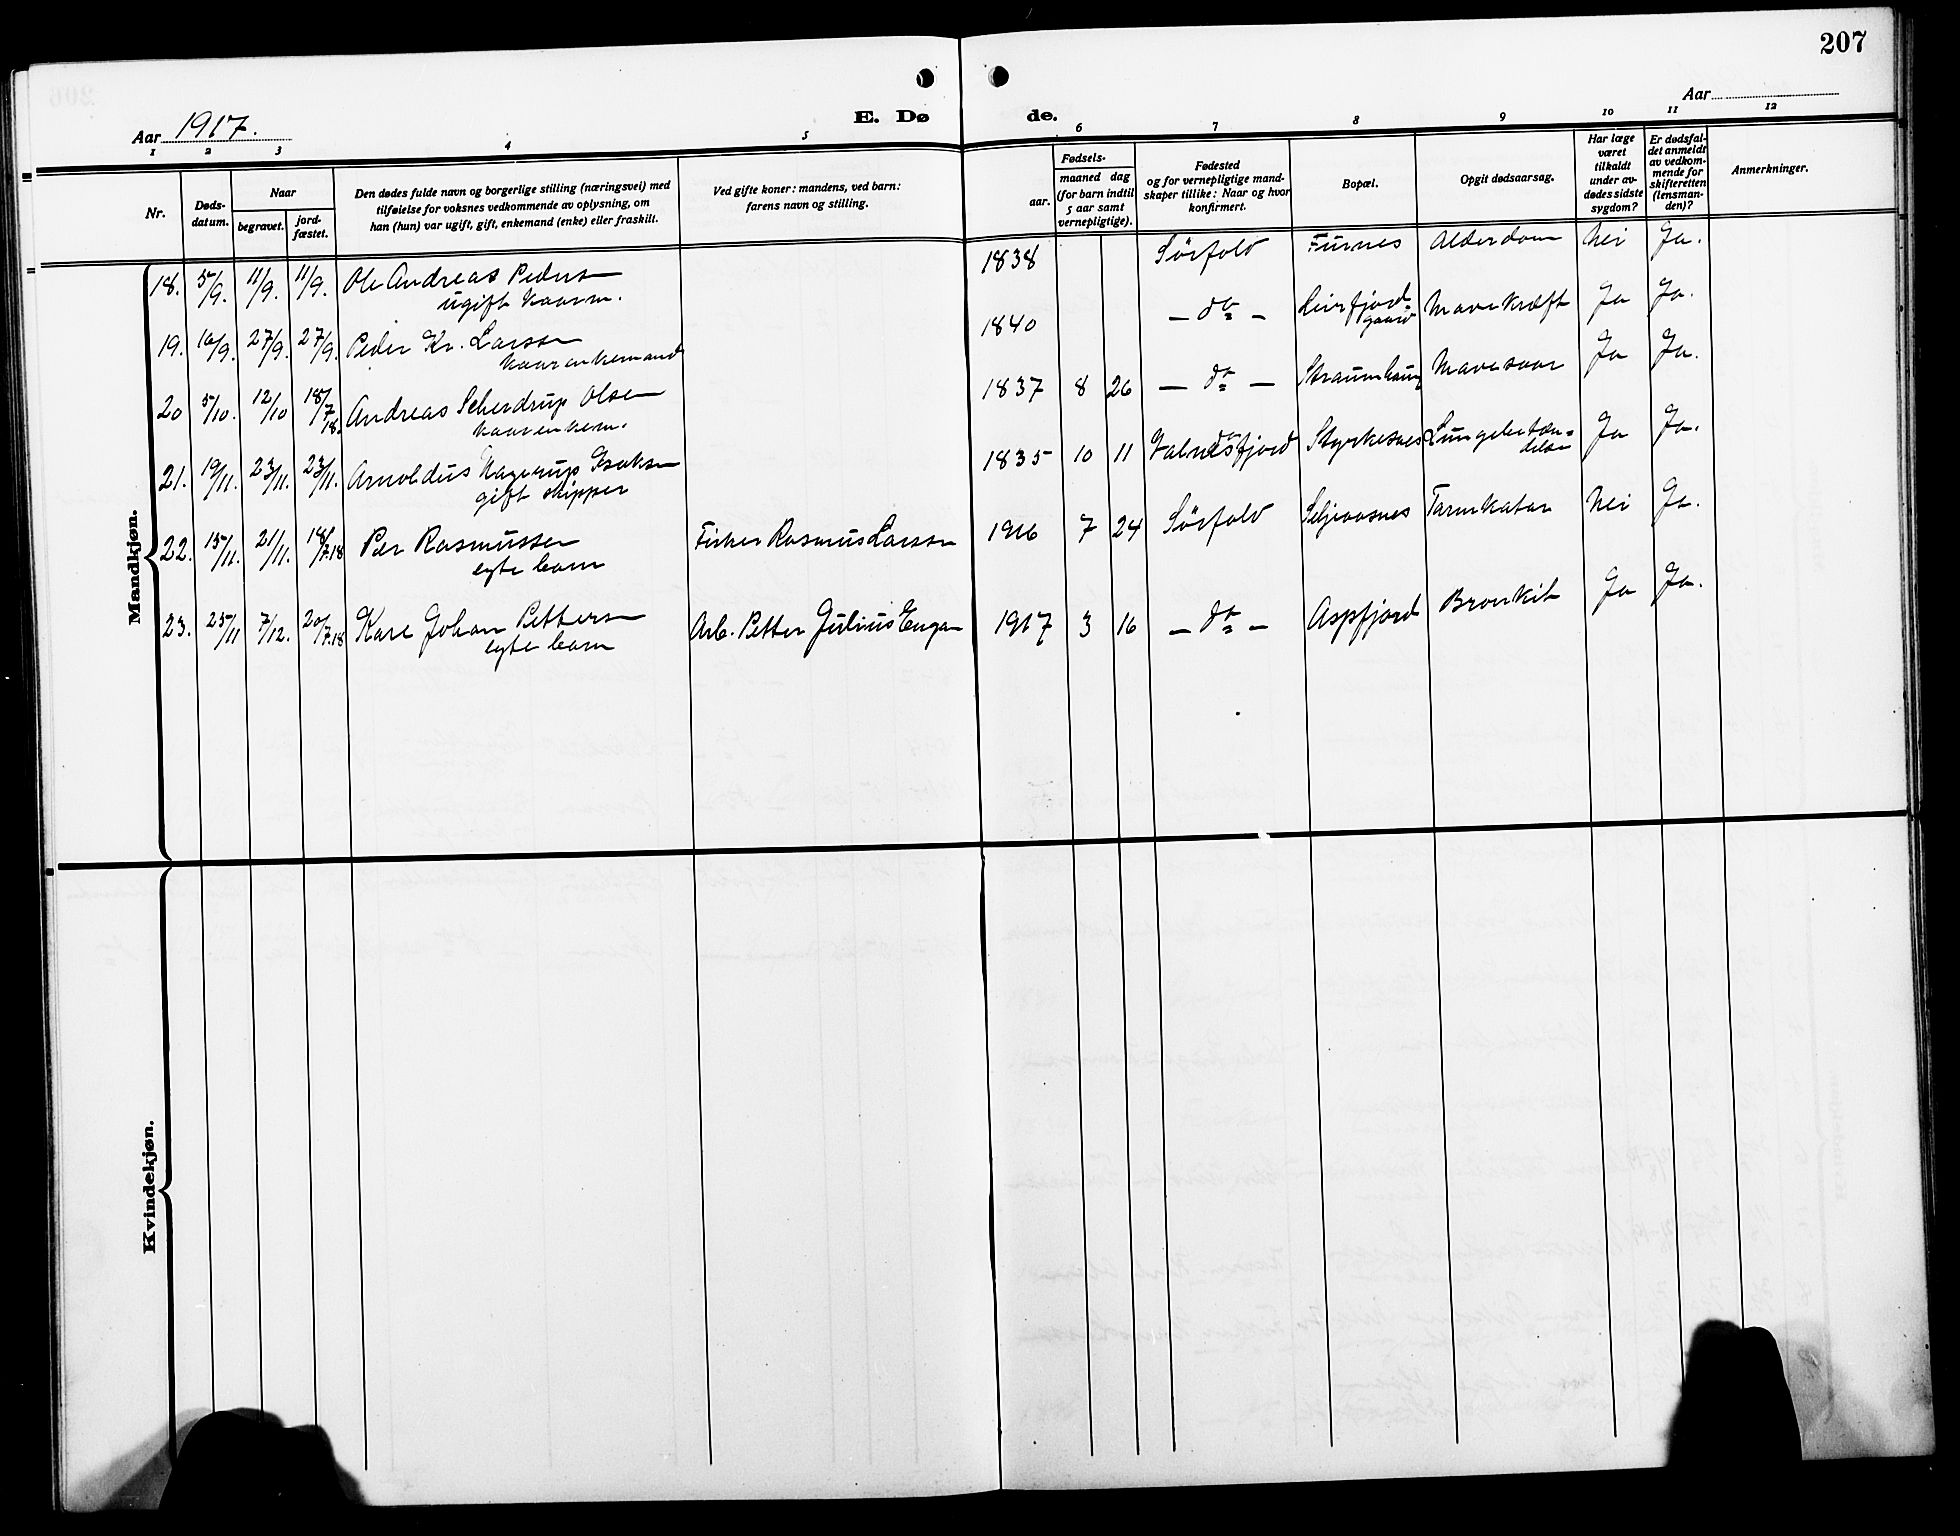 207
Aar 1917.
E. Dø de.
Aar
1 2 3 4 5 6 7 8 9 10 11 12
Nr.
Døds-
datum.
Naar
begravet.
jord-
fæstet.
Den dødes fulde navn og borgerlige stilling (næringsvei) med
tilføielse for voksnes vedkommende av oplysning, om
han (hun) var ugift, gift, enkemand (enke) eller fraskilt.
Ved gifte koner: mandens, ved barn:
farens navn og stilling.
Fødsels-
aar.
maaned dag
(for barn indtil
5 aar samt
vernepligtige).
Fødested
og for vernepligtige mand-
skaper tillike: Naar og hvor
konfirmert.
Bopæl.
Opgit dødsaarsag.
Har læge
været
tilkaldt
under av-
dødes sidste
sygdom?
Er dødsfal-
det anmeldt
av vedkom-
mende for
skifteretten
(lensman-
den)?
Anmerkninger.
Mandkjøn.
18. 5/9. 11/9. 11/9. Ole Andreas Peders 1838 Sörfold Furnes Alderdom Nei Ja.
ugift kaarm.
19. 16/9. 27/9. 27/9. Peder Kr. Larssen 1840 — do — Leirfjord- Mavekræft Ja Ja.
gaard
kaarenkemand
20 5/10. 12/10 18/7 18. Andreas Scherdrup Olsen 1837 8 26 — do — Straumhaug Mavesaar Ja Ja.
kaarenkem.
21. 19/11. 23/11. 23/11. Arnoldus Hagerup Isaksen 1835 10 11 Valnesfjord Styrkesnes Lungebetæn- Ja Ja.
delse
gift skipper
22. 15/11. 21/11. 18/7.18 Per Rasmussen Fisker Rasmus Larssen 1916 7 24 Sörfold Seljeaasnes Tarmkatar Nei Ja.
egte barn
23. 25/11 7/12. 20/7.18 Kare Johan Pettersen Arb. Petter Julius Engan 1917 3 16 — do — Aspfjord Bronkit Ja Ja.
egte barn
Kvindekjøn.